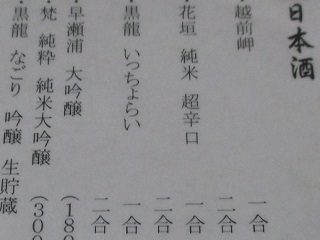 日本酒
越前岬 一合
二合
・花垣 純米 超辛口 一合
二合
・黒龍 いっちょらい 一合
二合
・早瀬浦 大吟醸 (180
・梵 純粋 純米大吟醸 (300
・黒龍 なごり 吟醸 生貯蔵